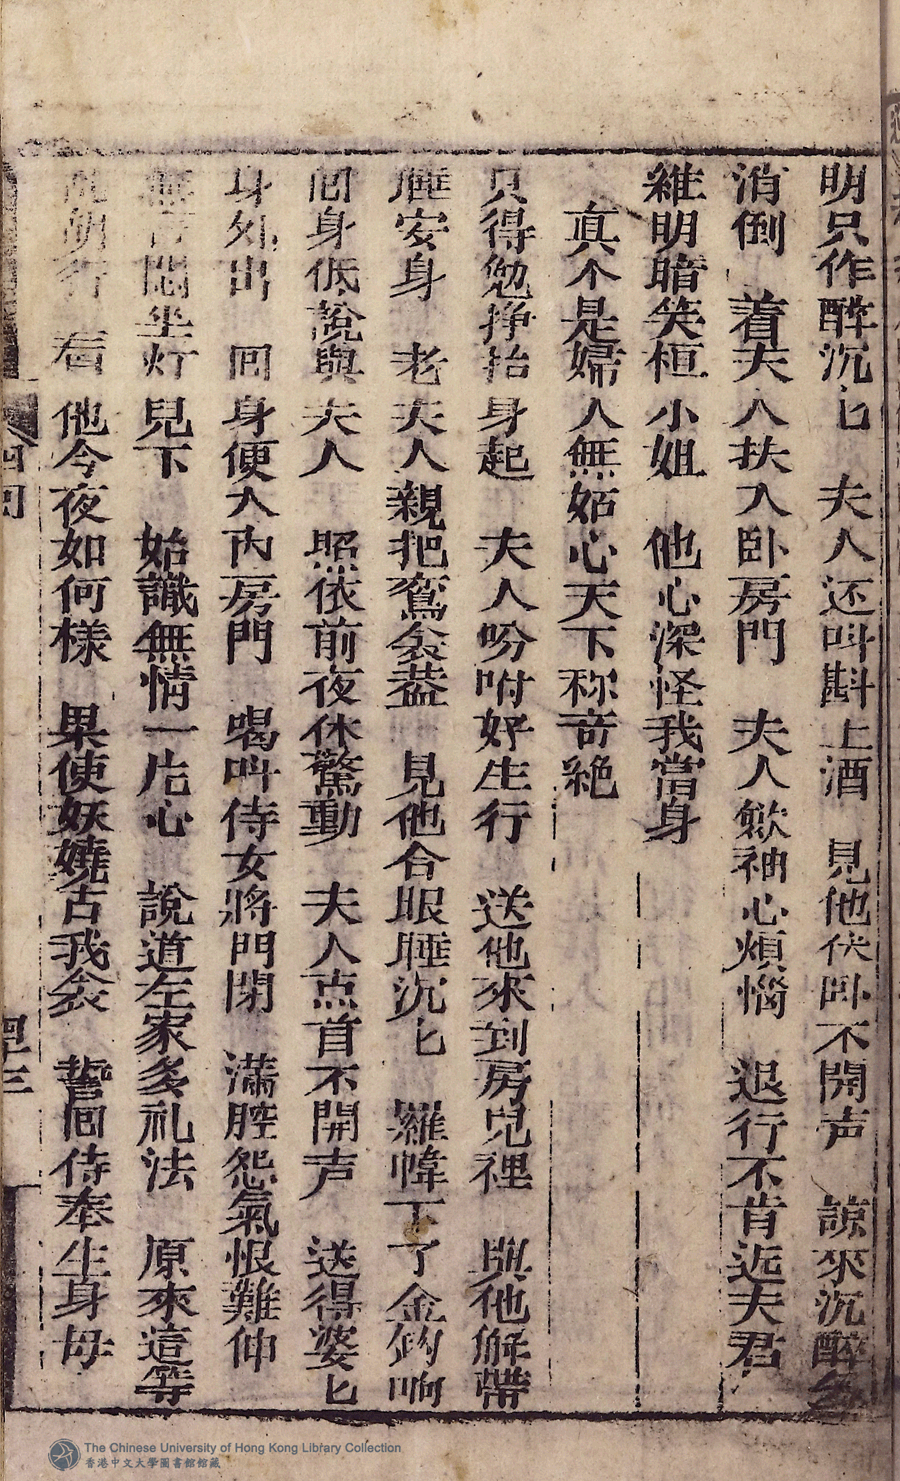 明只作醉沉匕　夫人还叫斟上酒　見他伏卧不開声　諒來沉醉
消倒　着夫人扶入卧房門　夫人歛袖心煩惱　退行不肯近夫君
維明暗笑桓小姐　他心深怪我當身
真个是婦人無妬心天下称奇絕
只得勉挣抬身起　夫人吩咐好生行　送他來到房兒裡　與他解帶
睡安身　老夫人親把鴛衾葢　見他合眼睡沉匕　羅幃下了金鈎响
囬身低說與夫人　照依前夜休驚動　夫人点首不開声　送得婆匕
身外出　囘身便入內房門　喝叫侍女將門閉　滿腔怨氣恨難伸
無言悶坐灯　見下　始識無情一片心　說道左家多礼法　原來這等
胡行　看他今夜如何樣　果使妖嬈占我衾　誓囬侍奉生身母
四囘
四十三
The Chinese University of Hong Kong Library Collection
香港中文大學圖書館館藏